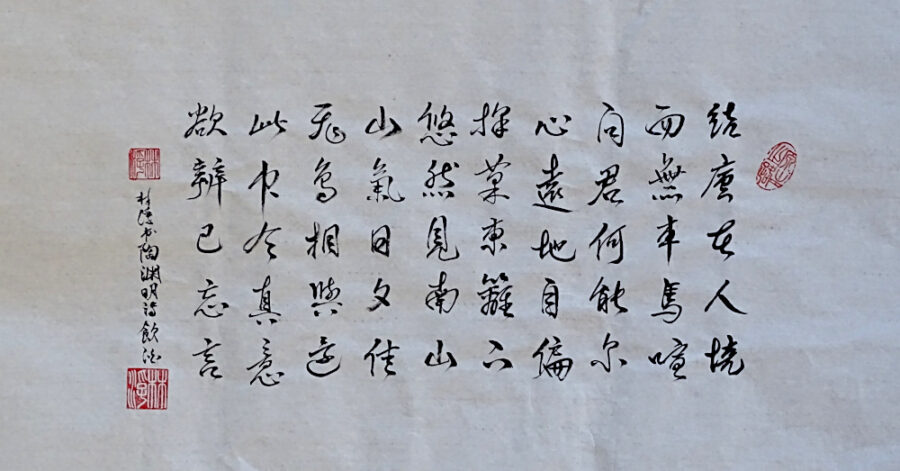 結廬在人境
而無車馬喧
问君何能尔
心遠地自偏
採菊東籬下
悠然見南山
山氣日夕佳
飛鳥相與还
此中含真意
欲辨已忘言
林书陶渊明詩飲酒